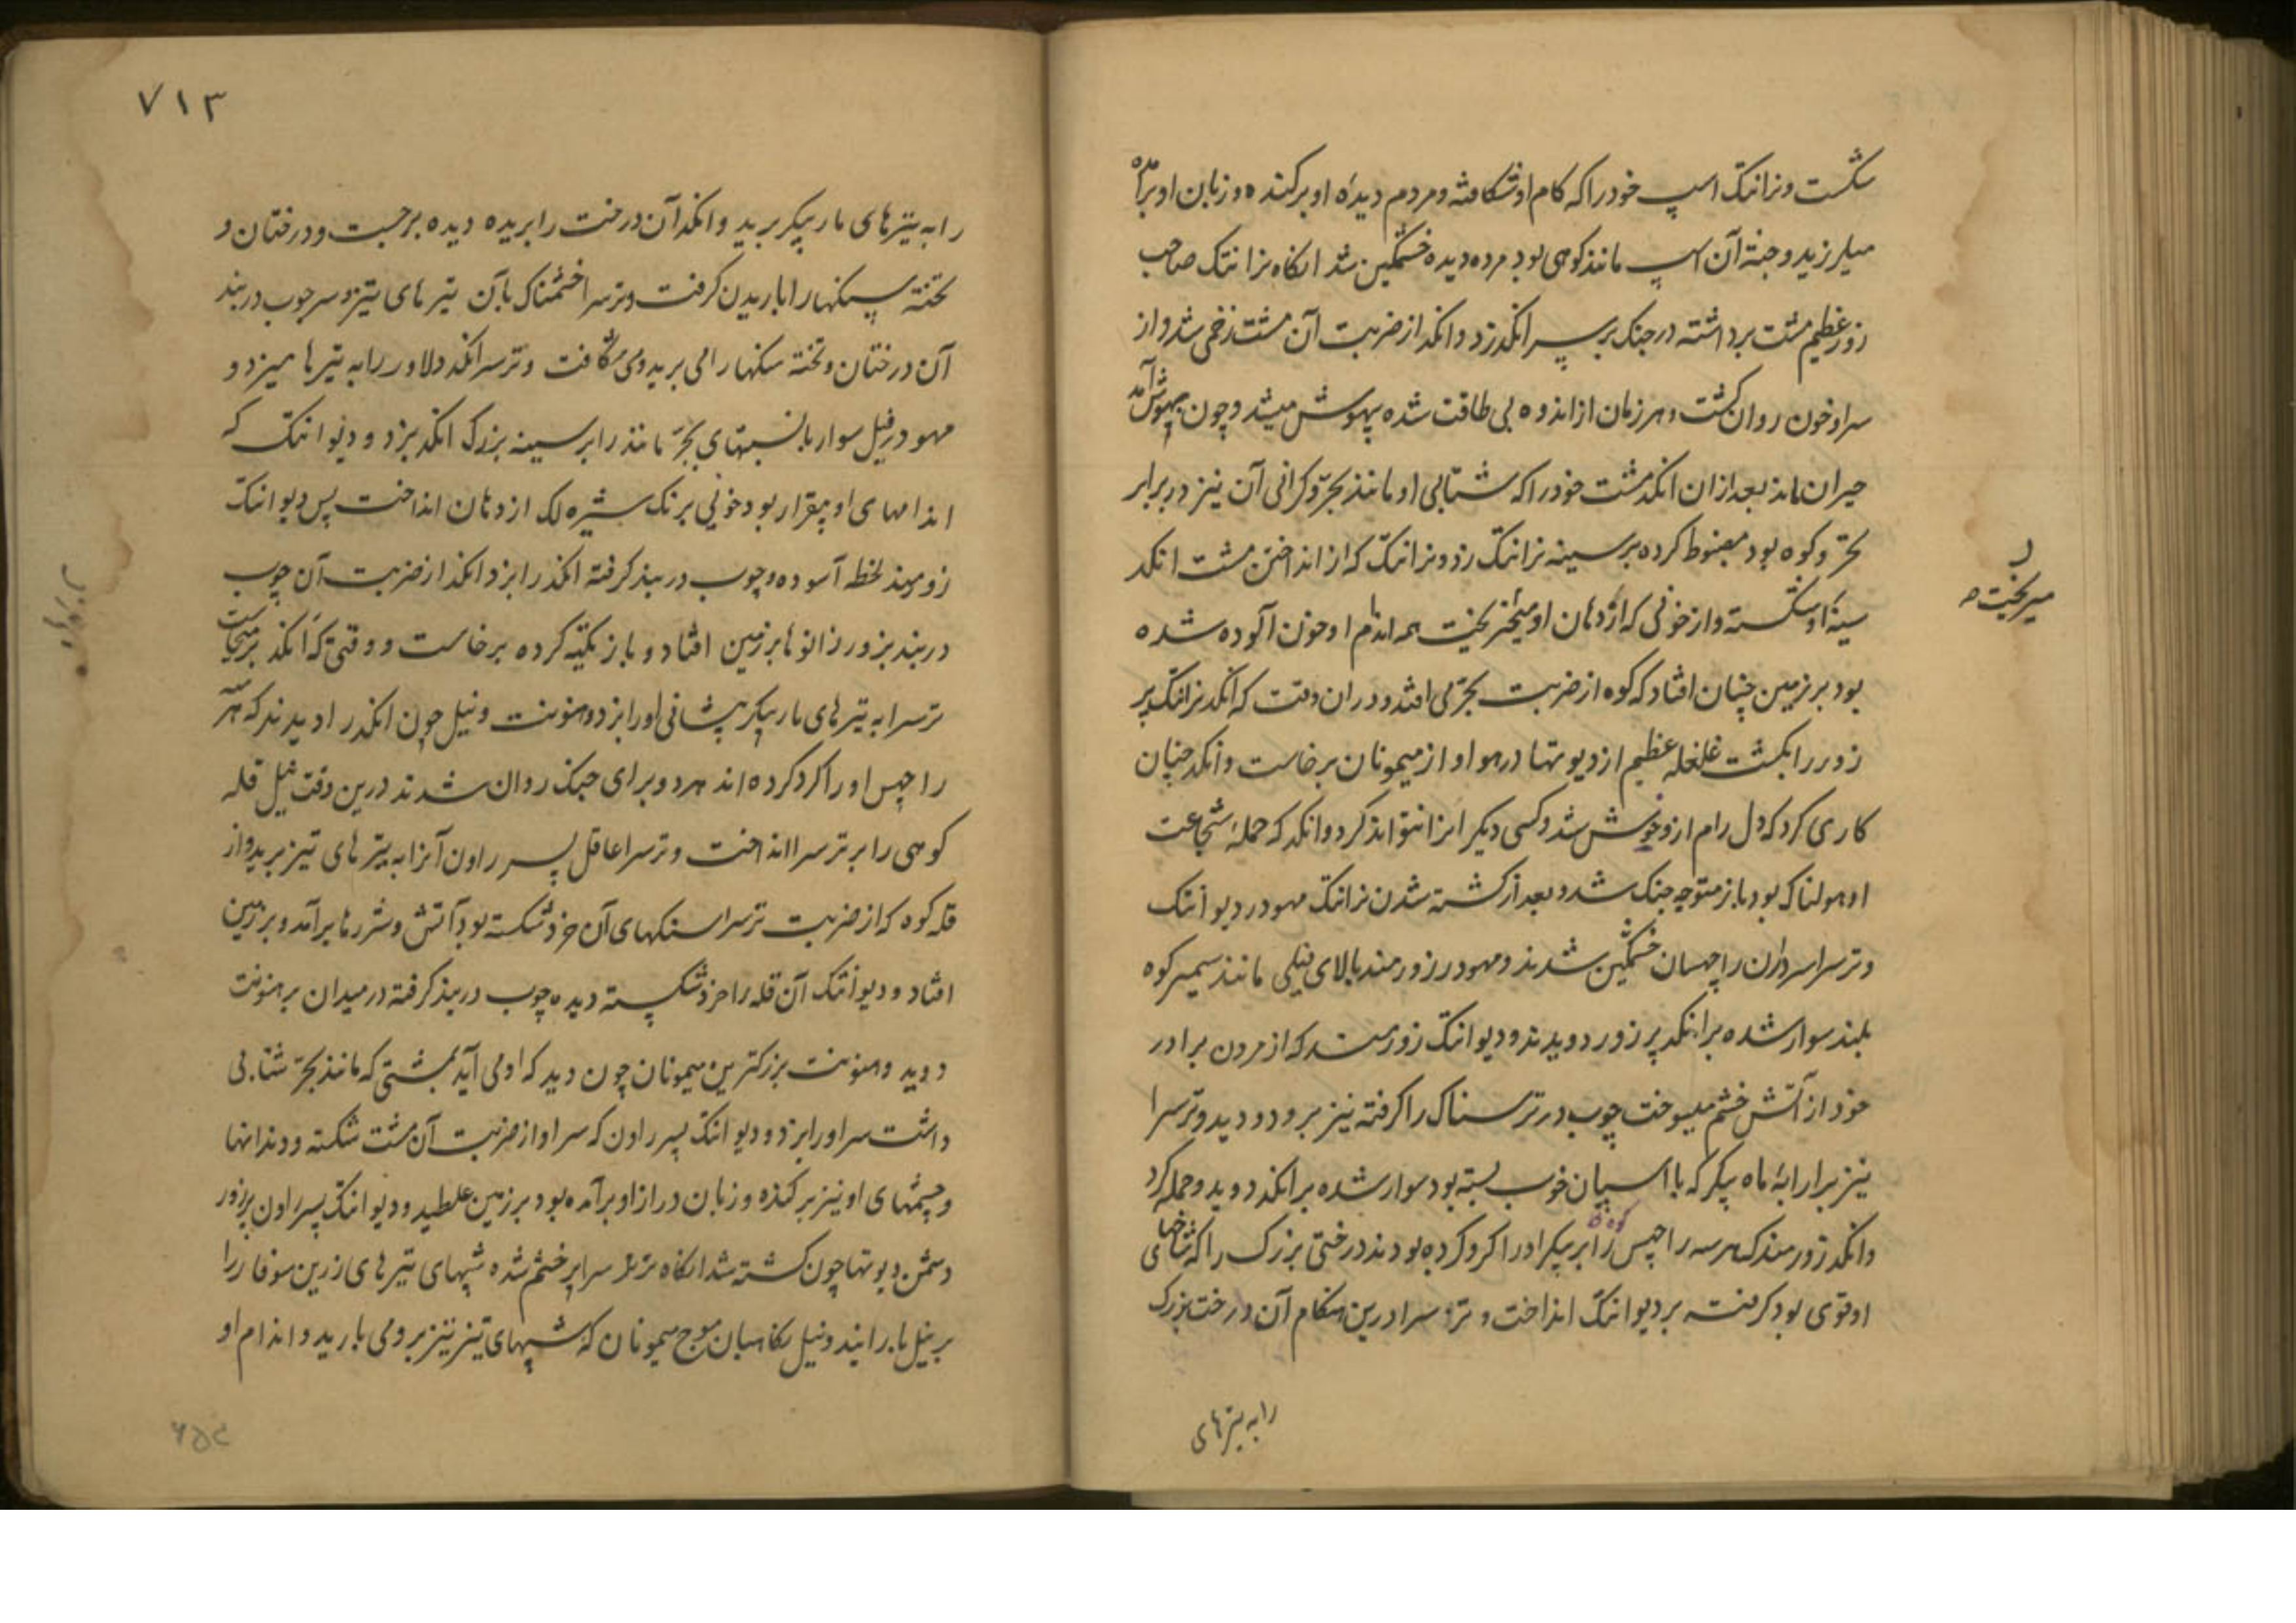 شکست و نرانتک اسپ خود را که کام او شکافته و مردم دیدهٔ او برکنده و زبان او برآمده
میلرزید و جثهٔ آن اسپ مانند کوهی بود مرده دیده خشمگین شد انگاه نرانتک صاحب
زور عظیم مشت برداشته در جنک بر سر انکد زد و انکد از ضربت آن مشت زخمی شد و از
سر او خون روان کشت و هر زمان از اندوه بی طاقت شده بیهوش میشد و چون بهوش آمد
حیران ماند بعد از ان انکد مشت خود را که شتابی او مانند بجر و کرانی آن نیز در برابر
بجر و کوه بود مضبوط کرده بر سینه نرانتک زد و نرانتک که از انداختن مشت انکد
سینهٔ او شکسته و از خونی که از دهان او میریخت همه اندام او خون آلوده شده
بود بر زمین چنان افتاد که کوه از ضربت بجر می افتد و در ان وقت که انکد نرانتک پر
زور را بکشت غلغله عظیم از دیوتها در هوا و از میمونان برخاست و انکد چنان
کاری کرد که دل رام از و خوش شد و کسی دیکر انرا نتواند کرد و انکد که حملهٔ شجاعت
او هولناک بود باز متوجه جنک شد و بعد از کشته شدن نرانتک مهودر و دیوانتک
و ترسرا سرداران راچهسان خشمگین شدند و مهودر زورمند بالای فیلی مانند سمیر کوه
بلند سوار شده بر انکد پر زور دویدند و دیوانتک زورمند که از مردن برادر
خود از آتش خشم میسوخت چوب در ترسناک را کرفته نیز برو دوید و ترسرا
نیز بر ارابهٔ ماه پیکر که با اسپان خوب بسته بود سوار شده بر انکد دوید و حمله کرد
و انکد زورمند که هر سه راچهس کوه پیکر او را کرد کرده بودند درختی بزرک را که شاخهای
او قوی بود کرفته بر دیوانتک انداخت و ترسرا درین هنکام آن درخت بزرک
را به تیرهای
میریخت
۷۱۳
را به تیرهای مار پیکر برید و انکد آن درخت را بریده دیده برجست و درختان و
تخته سنکها را باریدن کرفت و ترسرا خشمناک بآن تیرهای تیز و سر چوب در بند
آن درختان و تخته سنکها را می برید و می شکافت و ترسرا انکد دلاور را به تیرها میزد و
مهودر فیل سوار بانسبتهای بجر مانند را بر سینه بزرک انکد بزد و دیوانتک که
اندامهای او بیقرار بود خونی برنک شیره لک از دهان انداخت پس دیوانتک
زورمند لحظه آسوده و چوب در بند کرفته انکد را بزد انکد از ضربت آن چوب
در بند بزور زانوها بر زمین افتاد و باز تکیه کرده برخاست و وقتی که انکد برمیخاست
ترسرا به تیرهای مار پیکر پیشانی او را بزد و هنونت و نیل چون انکد را دیدند که هر سه
راچهس او را کرد کرده اند هر دو برای جنک روان شدند درین وقت نیل قله
کوهی را بر ترسرا انداخت و ترسرا عاقل پسر راون آنرا به تیرهای تیز برید و از
قله کوه که از ضربت ترسرا سنکهای آن خرد شکسته بود آتش و شررها برآمد و بر زمین
افتاد و دیوانتک آن قله را خرد شکسته دیده چوب در بند کرفته در میدان بر هنونت
دوید و هنونت بزرکترین میمونان چون دید که او می آید بمشتی که مانند بجر شتابی
داشت سر او را بزد و دیوانتک پسر راون که سر او از ضربت آن مشت شکسته و دندانها
و چشمهای او نیز برکنده و زبان دراز او برآمده بود بر زمین غلطید و دیوانتک پسر راون پرزور
دشمن دیوتها چون کشته شد انکاه ترسرا پر خشم شده شپهای تیرهای زرین سوفار را
بر نیل بارانید و نیل نکاهبان فوج میمونان که شپهای تیز تیز برو می بارید و اندام او